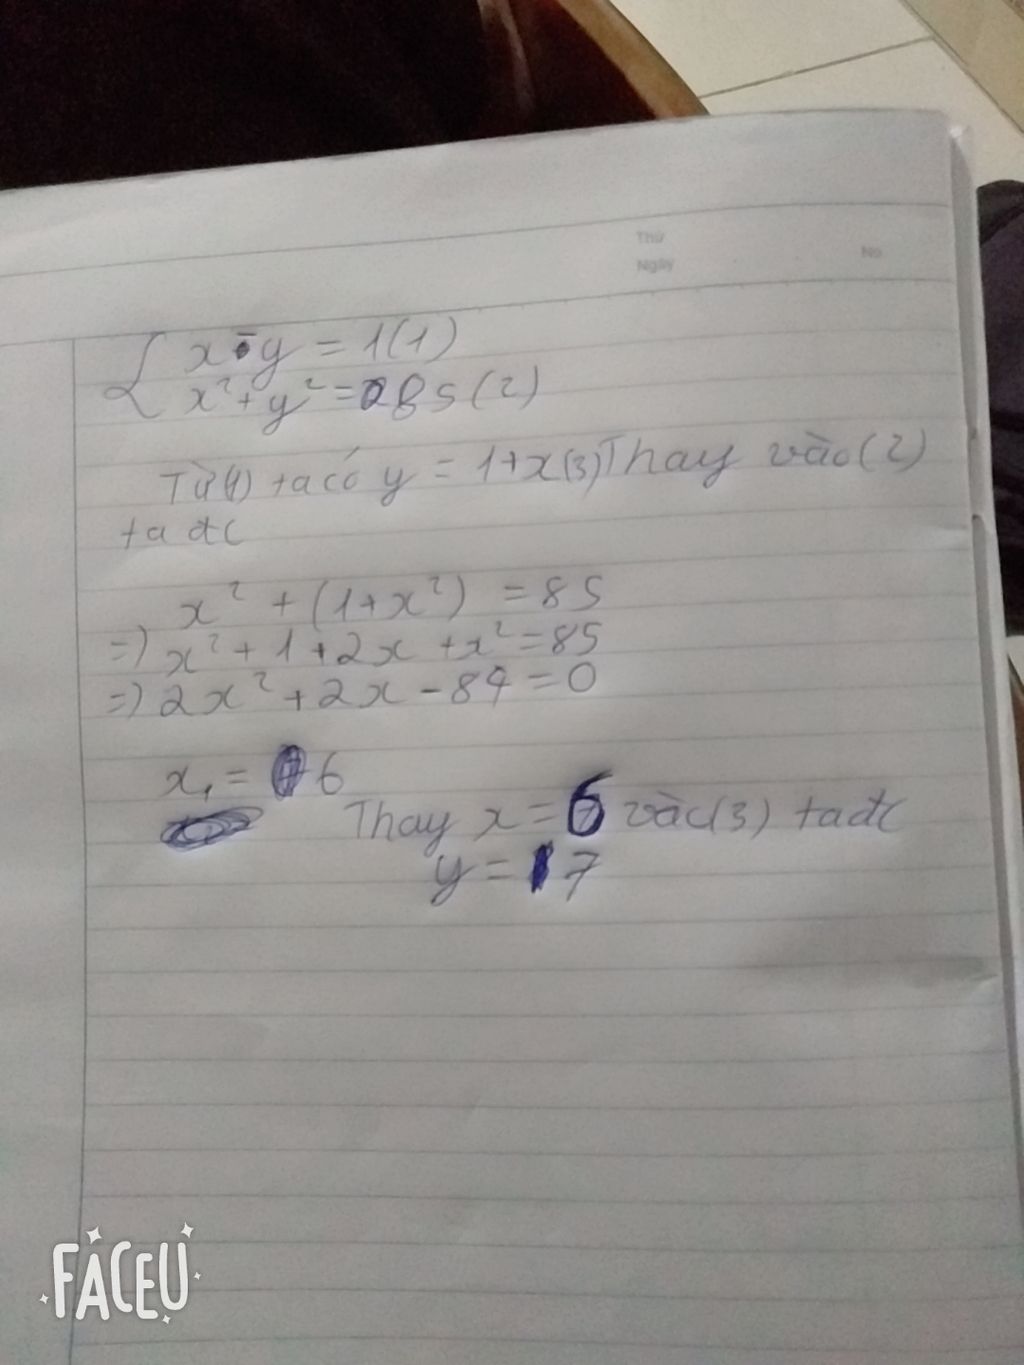 Thứ
Ngày No.
{ x - y = 1 (1)
x² + y² = 85 (2)
Từ (1) ta có y = 1+x (3) Thay vào (2)
ta đc
x² + (1+x²) = 85
=) x² + 1 + 2x + x² = 85
=) 2x² + 2x - 84 = 0
x₁ = 6
Thay x = 6 vào (3) ta đc
y = 7
FACEU